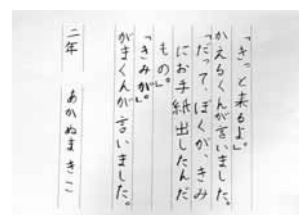 「きっと来るよ。」
かえるくんが言いました。
「だって、ぼくが、きみ
にお手紙出したんだ
もの。」
「きみが。」
がまくんが言いました。
二年　あかぬまきこ